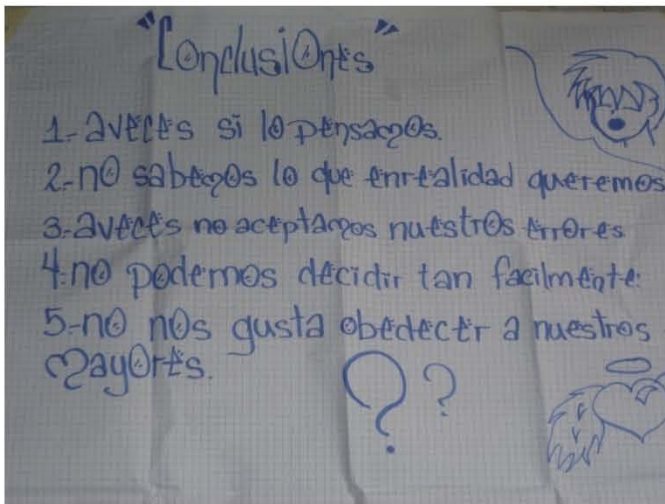 "Conclusiones"
1.- aveces si lo pensamos.
2.- no sabemos lo que enrealidad queremos
3- aveces no aceptamos nuestros errores
4. no podemos decidir tan facilmente.
5- no nos gusta obedecer a nuestros
mayores.
? ?